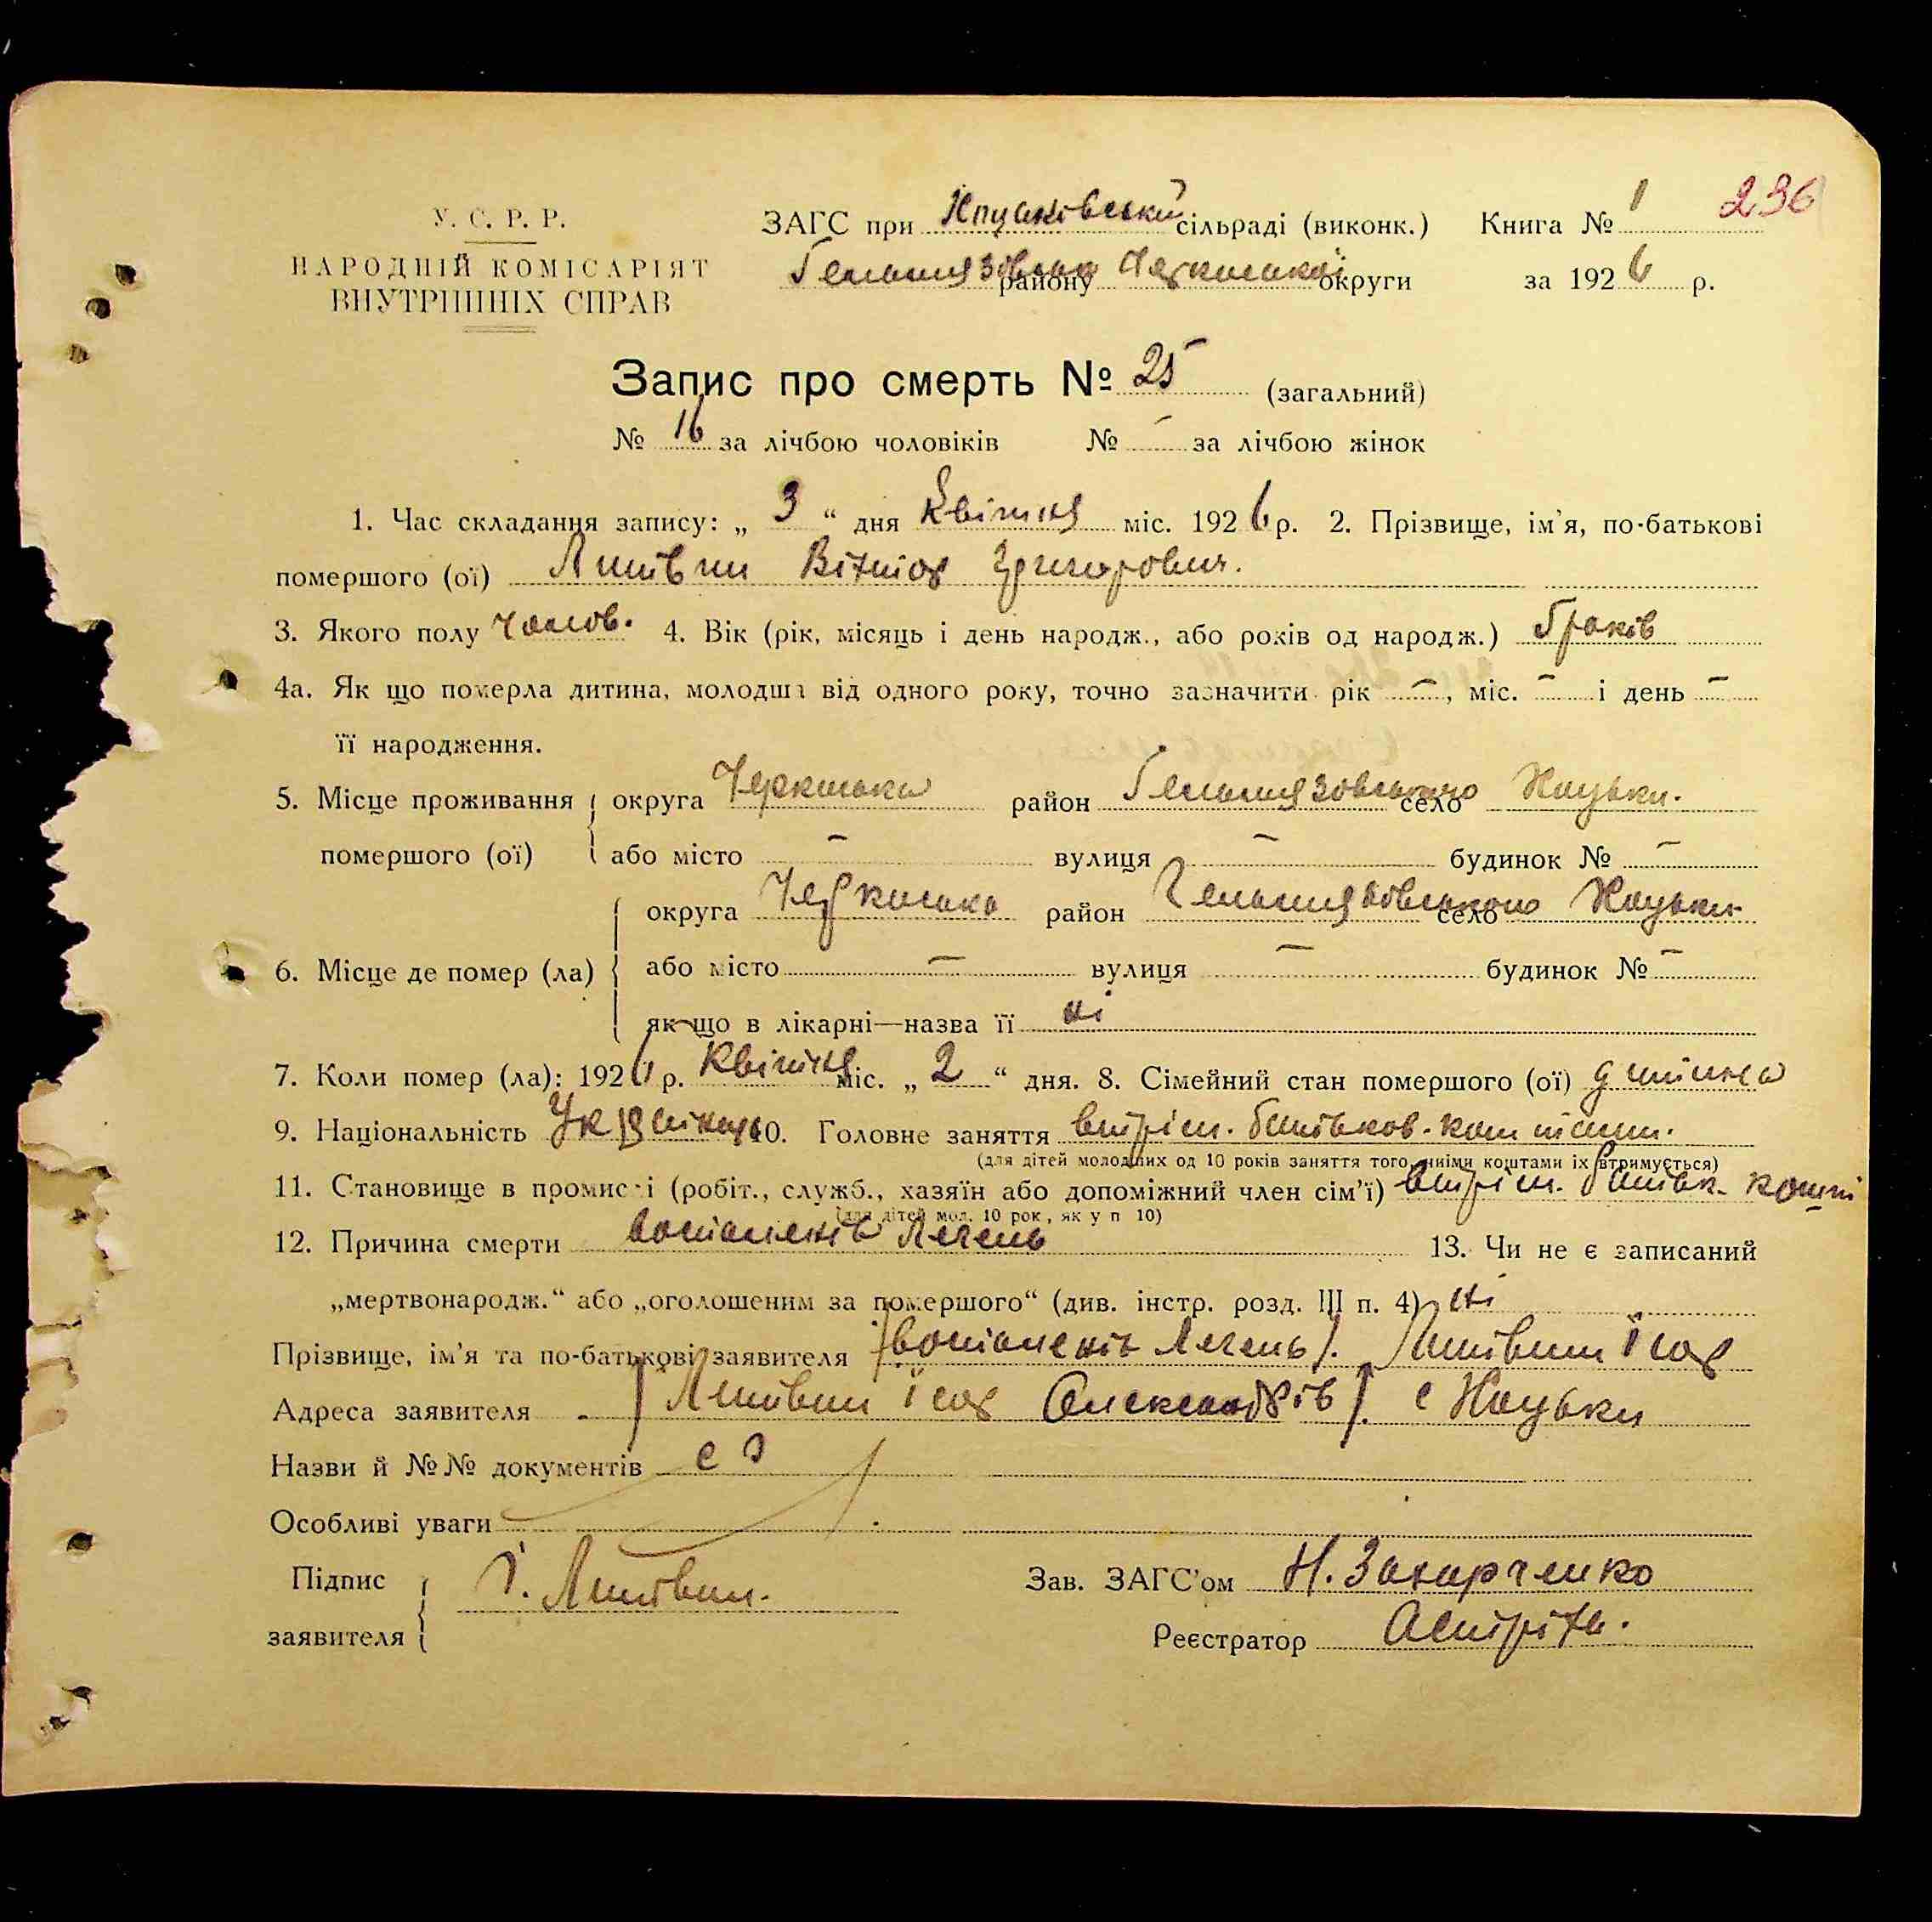 236
У. С. Р. Р.
НАРОДНІЙ КОМІСАРІЯТ
ВНУТРІШНІХ СПРАВ
ЗАГС при сільраді (виконк.) Книга № 1
району Черкаської округи за 1926 р.
Запис про смерть № 25 (загальний)
№ 16 за лічбою чоловіків № – за лічбою жінок
1. Час складання запису: „ 3 “ дня Квітня міс. 1926 р. 2. Прізвище, ім'я, по-батькові
помершого (ої) Литвин Віктор Григорович.
3. Якого полу чолов. 4. Вік (рік, місяць і день народж., або років од народж.) років
4а. Як що померла дитина, молодша від одного року, точно зазначити рік –, міс. – і день –
її народження.
5. Місце проживання округа Черкаська район Гельмязовського село Коцюбки.
помершого (ої) або місто – вулиця – будинок № –
округа Черкаська район Гельмязовського село
6. Місце де помер (ла) або місто – вулиця – будинок № –
як що в лікарні—назва її ні
7. Коли помер (ла): 1926 р. Квітня міс. „ 2 “ дня. 8. Сімейний стан помершого (ої) дитина
9. Національність Українець 10. Головне заняття втрім. батьков. коштами.
(для дітей молодших од 10 років заняття того, чиїми коштами їх втримується)
11. Становище в промислі (робіт., служб., хазяїн або допоміжний член сім'ї) втрім. батьк. кошт
(для дітей мол. 10 рок, як у п 10)
12. Причина смерти воспаленія Легень 13. Чи не є записаний
„мертвонародж.“ або „оголошеним за помершого“ (див. інстр. розд. III п. 4) ні
Прізвище, ім'я та по-батькові заявителя /воспаленія Легень/. Литвин
Адреса заявителя /Литвин Олександрів/. с
Назви й №№ документів
Особливі уваги
Підпис І. Литвин. Зав. ЗАГС'ом Н. Захарченко
заявителя Реєстратор